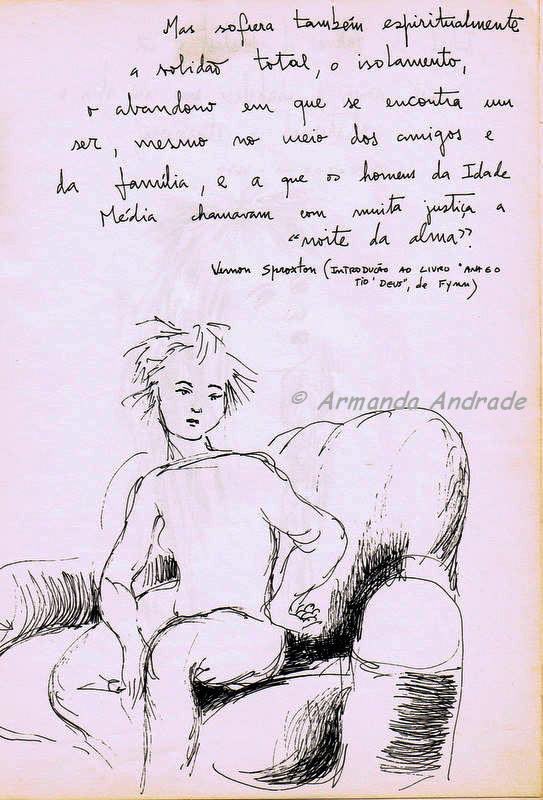 Mas sofrera também espiritualmente
a solidão total, o isolamento,
o abandono em que se encontra um
ser, mesmo no meio dos amigos e
da família, e a que os homens da Idade
Média chamavam com muita justiça a
"noite da alma".
Vernon Sproxton (INTRODUÇÃO AO LIVRO "ANA E O
TIO 'DEUS", de Fynn)
© Armanda Andrade